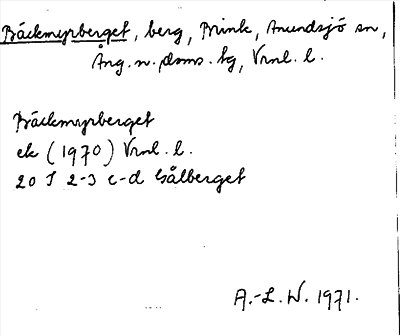 Bäckmyrberget, berg, Brink, Anundsjö sn,
Ång. n. doms. tg, Vrnl. l.
Bäckmyrberget
ek (1970) Vrnl. l.
20 I 2-3 c-d Gålberget
A.-L. W. 1971.